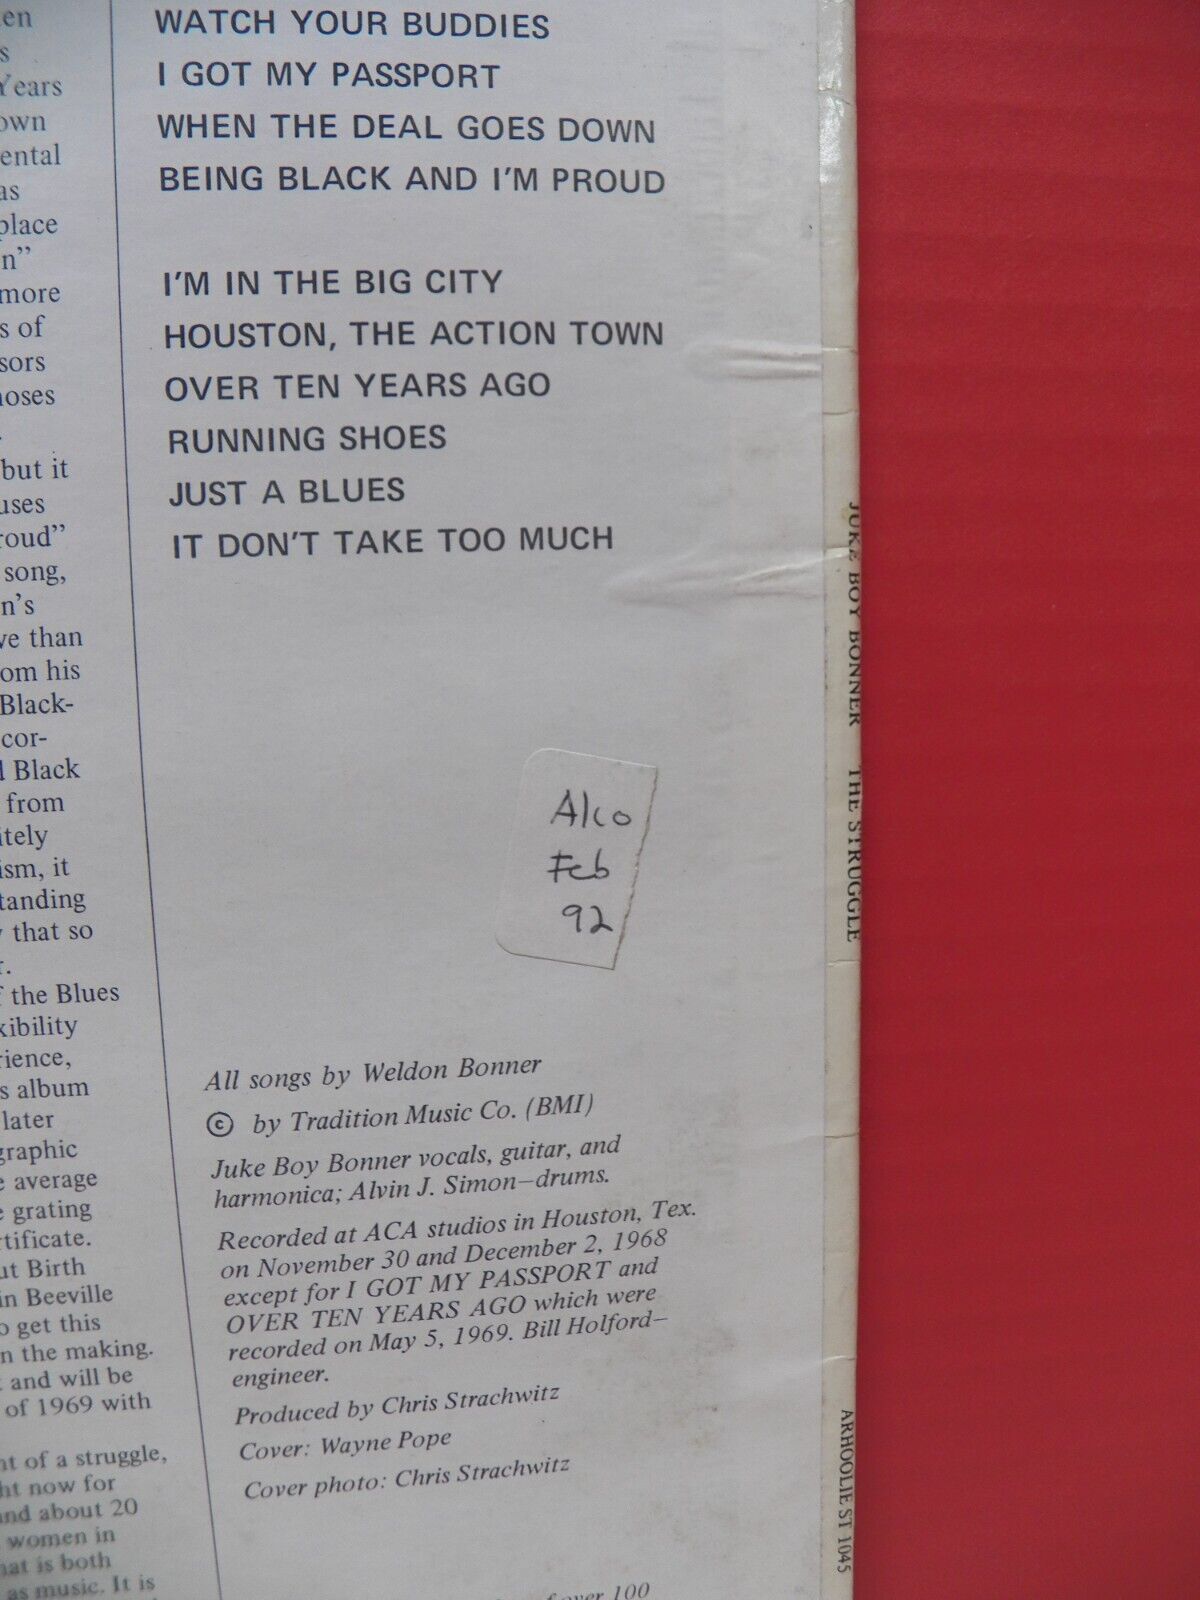 en
s
Years
own
ental
as
place
n"
more
s of
sors
oses
.
but it
uses
roud"
song,
n's
ve than
om his
Black-
cor-
d Black
from
itely
ism, it
tanding
y that so
r.
f the Blues
xibility
rience,
s album
later
graphic
e average
e grating
rtificate.
ut Birth
in Beeville
o get this
n the making.
t and will be
of 1969 with
nt of a struggle,
ht now for
and about 20
women in
hat is both
as music. It is
WATCH YOUR BUDDIES
I GOT MY PASSPORT
WHEN THE DEAL GOES DOWN
BEING BLACK AND I'M PROUD
I'M IN THE BIG CITY
HOUSTON, THE ACTION TOWN
OVER TEN YEARS AGO
RUNNING SHOES
JUST A BLUES
IT DON'T TAKE TOO MUCH
Alco
Feb
92
All songs by Weldon Bonner
© by Tradition Music Co. (BMI)
Juke Boy Bonner vocals, guitar, and
harmonica; Alvin J. Simon—drums.
Recorded at ACA studios in Houston, Tex.
on November 30 and December 2, 1968
except for I GOT MY PASSPORT and
OVER TEN YEARS AGO which were
recorded on May 5, 1969. Bill Holford—
engineer.
Produced by Chris Strachwitz
Cover: Wayne Pope
Cover photo: Chris Strachwitz
of over 100
JUKE BOY BONNER THE STRUGGLE
ARHOOLIE ST 1045